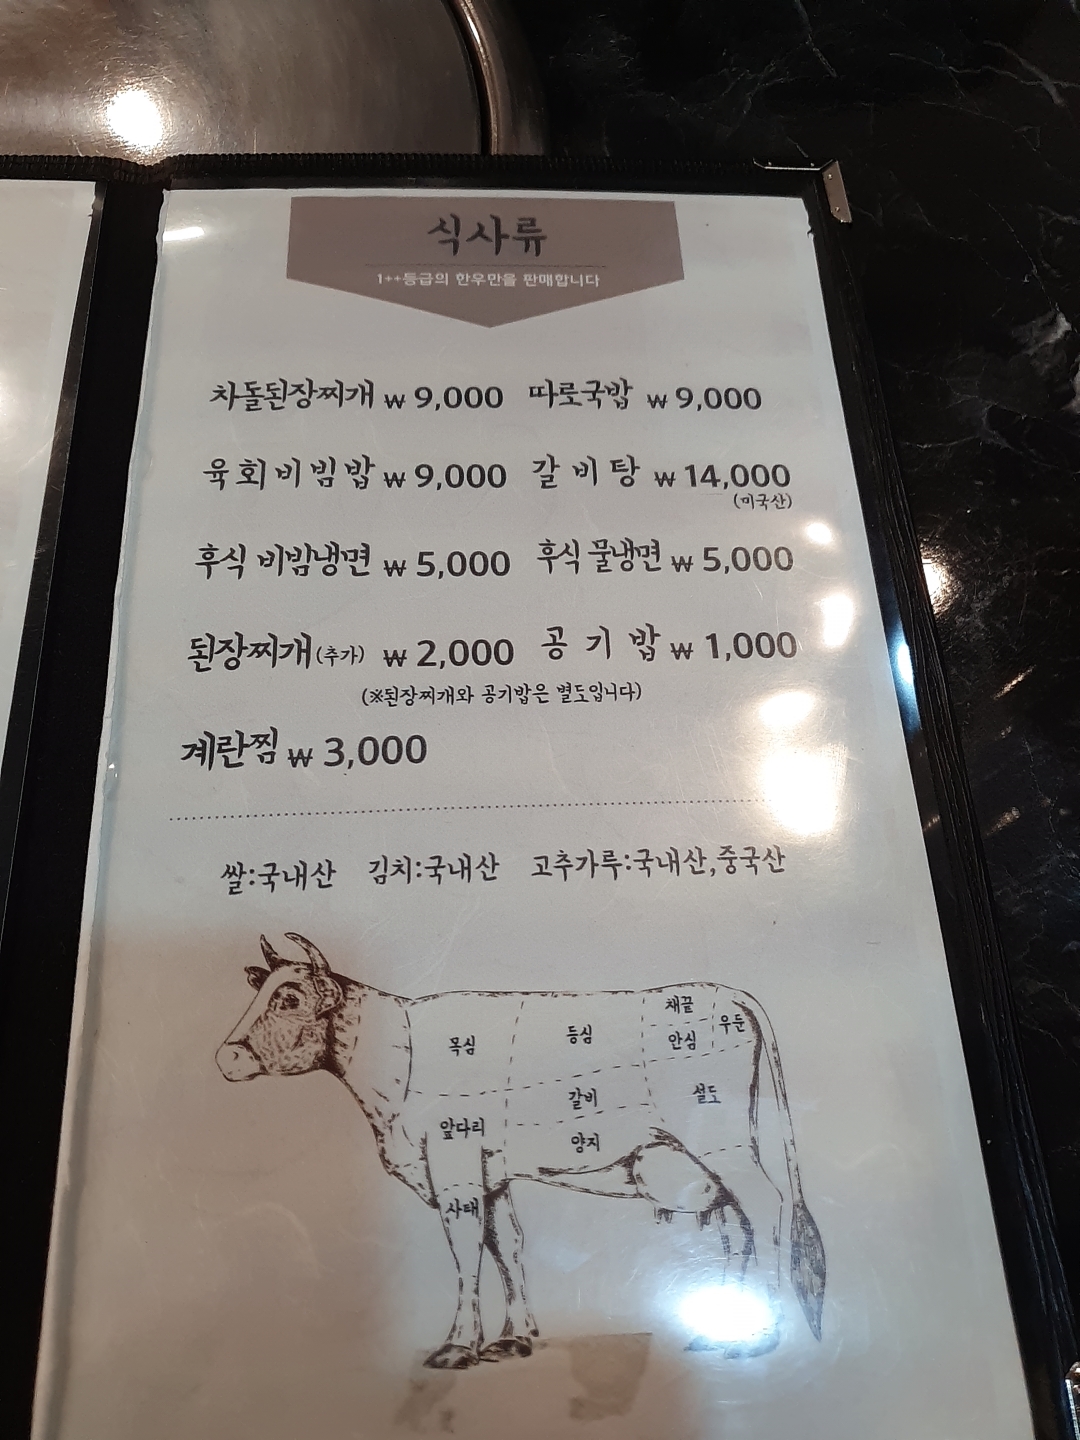 식사류
1++등급의 한우만을 판매합니다
차돌된장찌개 ₩ 9,000 따로국밥 ₩ 9,000
육회비빔밥 ₩ 9,000 갈비탕 ₩ 14,000
(미국산)
후식 비빔냉면 ₩ 5,000 후식 물냉면 ₩ 5,000
된장찌개(추가) ₩ 2,000 공기밥 ₩ 1,000
(※된장찌개와 공기밥은 별도입니다)
계란찜 ₩ 3,000
쌀:국내산 김치:국내산 고추가루:국내산,중국산
목심 등심 채끝 안심 우둔
갈비 설도
앞다리 양지
사태